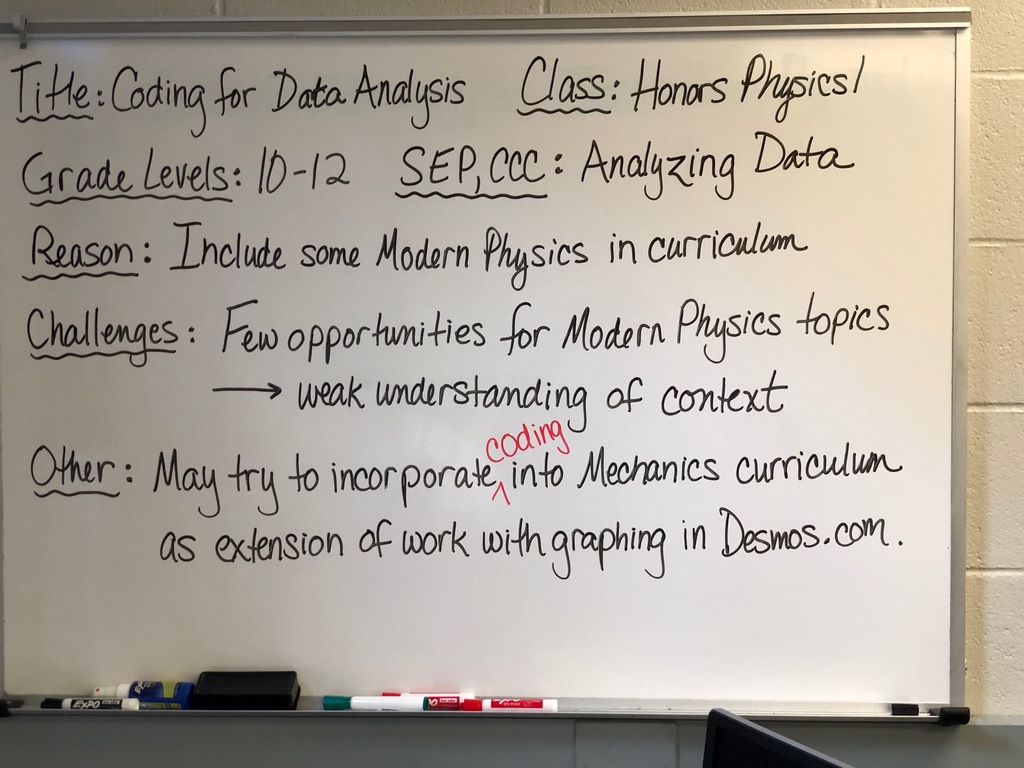 Title: Coding for Data Analysis Class: Honors Physics 1
Grade Levels: 10-12 SEP, CCC: Analyzing Data
Reason: Include some Modern Physics in curriculum
Challenges: Few opportunities for Modern Physics topics
→ weak understanding of context
coding
Other: May try to incorporate ^ into Mechanics curriculum
as extension of work with graphing in Desmos.com.
EXPO